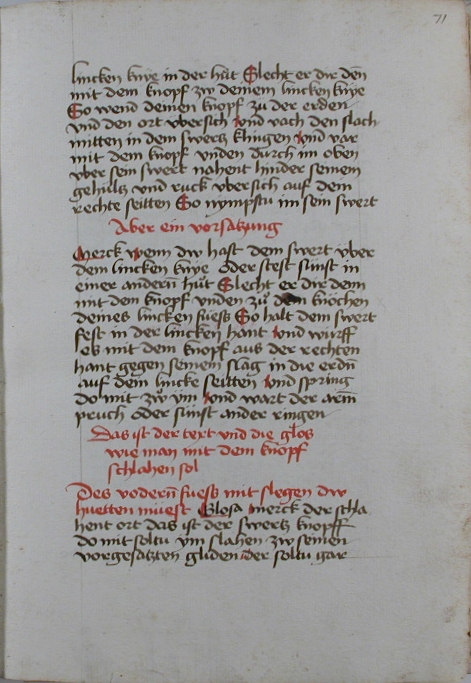 71
lincken knye in der hůt Slecht er dir den̄
mit dem knopf zw deinem lincken knye
So wend deinen knopf zu der erden
vnd den ort vbersich vnd vach den slach
mitten in dem swertz klingen vnd var
mit dem knopf vnden durch im oben
vber sein swert nahent hinder seinem
gehültz vnd ruck vbersich auf dein
rechte seitten So nympstu im sein swert
Aber ein vorsatzung
Merck wenn dw hast dein swert vber
dem lincken knye oder stest sünst in
einer andern̄ hůt Slecht er dir denn
mit dem knopf vnden zů dem knöchen
deines lincken fuess So halt dein swert
fest in der lincken hant vnd würff
es mit dem knopf aus der rechten
hant gegen seinem slag in die erdn̄
auf dein lincke seitten vnd spring
do mit zw ym vnd wart der arm
pruch oder sünst ander ringen
Das ist der text vnd die glos
wie man mit dem knopf
schlahen sol
Des vodern̄ fuess mit slegen dw
huetten müest Glosa merck der scha
hent ort das ist der swertz knopff
do mit soltu ym slahen zw seinen
vorgesatzten glidern der soltu gar